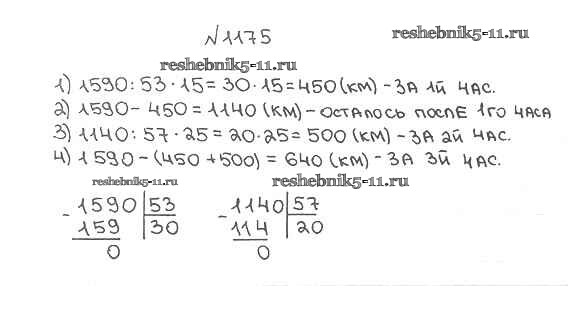 №1175
reshebnik5-11.ru
reshebnik5-11.ru
1) 1590 : 53 · 15 = 30 · 15 = 450 (км) - за 1й час.
2) 1590 - 450 = 1140 (км) - осталось после 1го часа
3) 1140 : 57 · 25 = 20 · 25 = 500 (км) - за 2й час.
4) 1590 - (450 + 500) = 640 (км) - за 3й час.
reshebnik5-11.ru
reshebnik5-11.ru
- 1590 | 53
159 | 30
0
- 1140 | 57
114 | 20
0